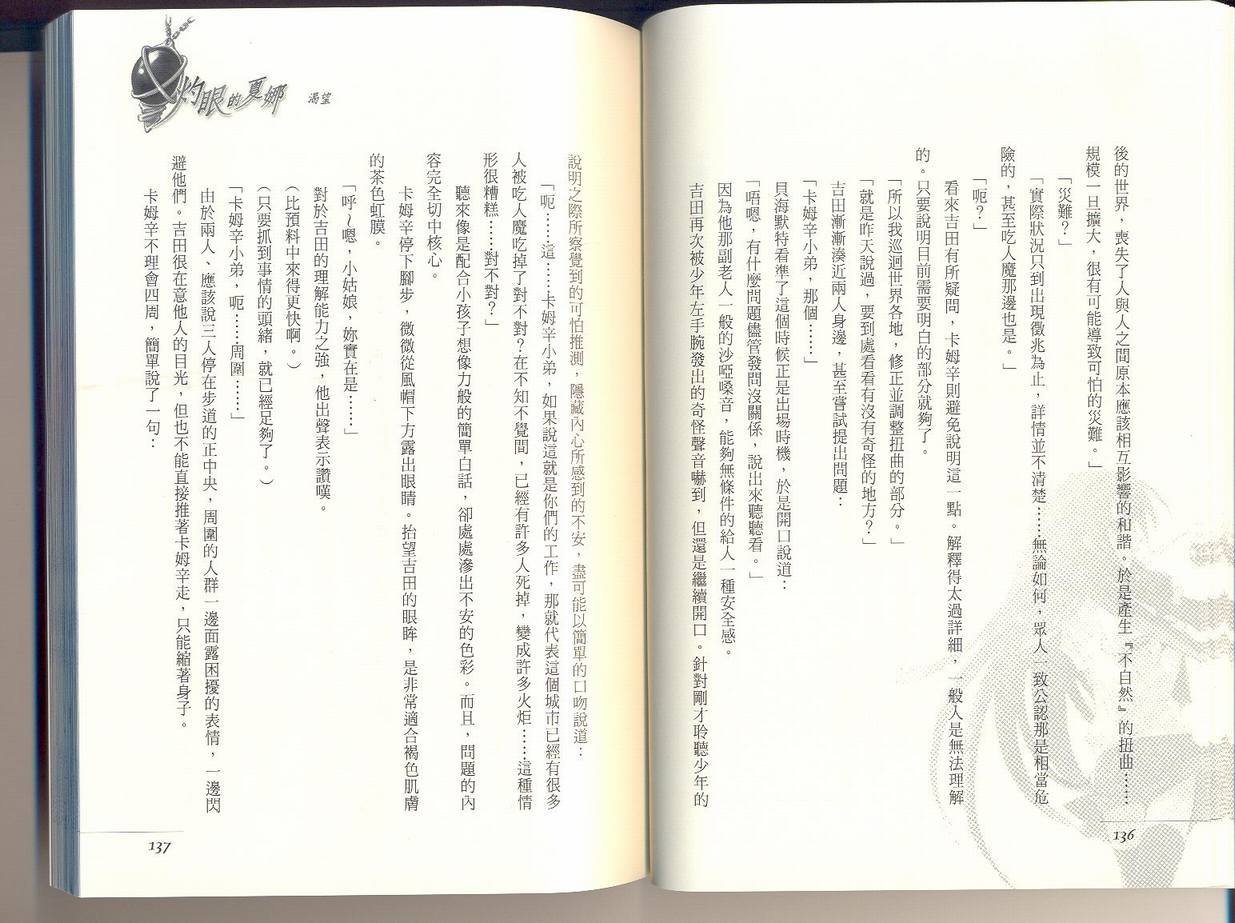 後的世界，喪失了人與人之間原本應該相互影響的和諧。於是產生『不自然』的扭曲……
規模一旦擴大，很有可能導致可怕的災難。」
「災難？」
「實際狀況只到出現徵兆為止，詳情並不清楚……無論如何，眾人一致公認那是相當危
險的，甚至吃人魔那邊也是。」
「呃？」
看來吉田有所疑問，卡姆辛則避免說明這一點。解釋得太過詳細，一般人是無法理解
的。只要說明目前需要明白的部分就夠了。
「所以我巡迴世界各地，修正並調整扭曲的部分。」
「就是昨天說過，要到處看看有沒有奇怪的地方？」
吉田漸漸湊近兩人身邊，甚至嘗試提出問題：
「卡姆辛小弟，那個……」
貝海默特看準了這個時候正是出場時機，於是開口說道：
「唔嗯，有什麼問題儘管發問沒關係，說出來聽聽看。」
因為他那副老人一般的沙啞嗓音，能夠無條件的給人一種安全感。
吉田再次被少年左手腕發出的奇怪聲音嚇到，但還是繼續開口。針對剛才聆聽少年的
136
灼眼的夏娜 渴望
說明之際所察覺到的可怕推測，隱藏內心所感到的不安，盡可能以簡單的口吻說道：
「呃……這……卡姆辛小弟，如果說這就是你們的工作，那就代表這個城市已經有很多
人被吃人魔吃掉了對不對？在不知不覺間，已經有許多人死掉，變成許多火炬……這種情
形很糟糕……對不對？」
聽來像是配合小孩子想像力般的簡單白話，卻處處滲出不安的色彩。而且，問題的內
容完全切中核心。
卡姆辛停下腳步，微微從風帽下方露出眼睛。抬望吉田的眼眸，是非常適合褐色肌膚
的茶色虹膜。
「呼～嗯，小姑娘，妳實在是……」
對於吉田的理解能力之強，他出聲表示讚嘆。
（比預料中來得更快啊。）
（只要抓到事情的頭緒，就已經足夠了。）
「卡姆辛小弟，呃……周圍……」
由於兩人、應該說三人停在步道的正中央，周圍的人群一邊面露困擾的表情，一邊閃
避他們。吉田很在意他人的目光，但也不能直接推著卡姆辛走，只能縮著身子。
卡姆辛不理會四周，簡單說了一句：
137